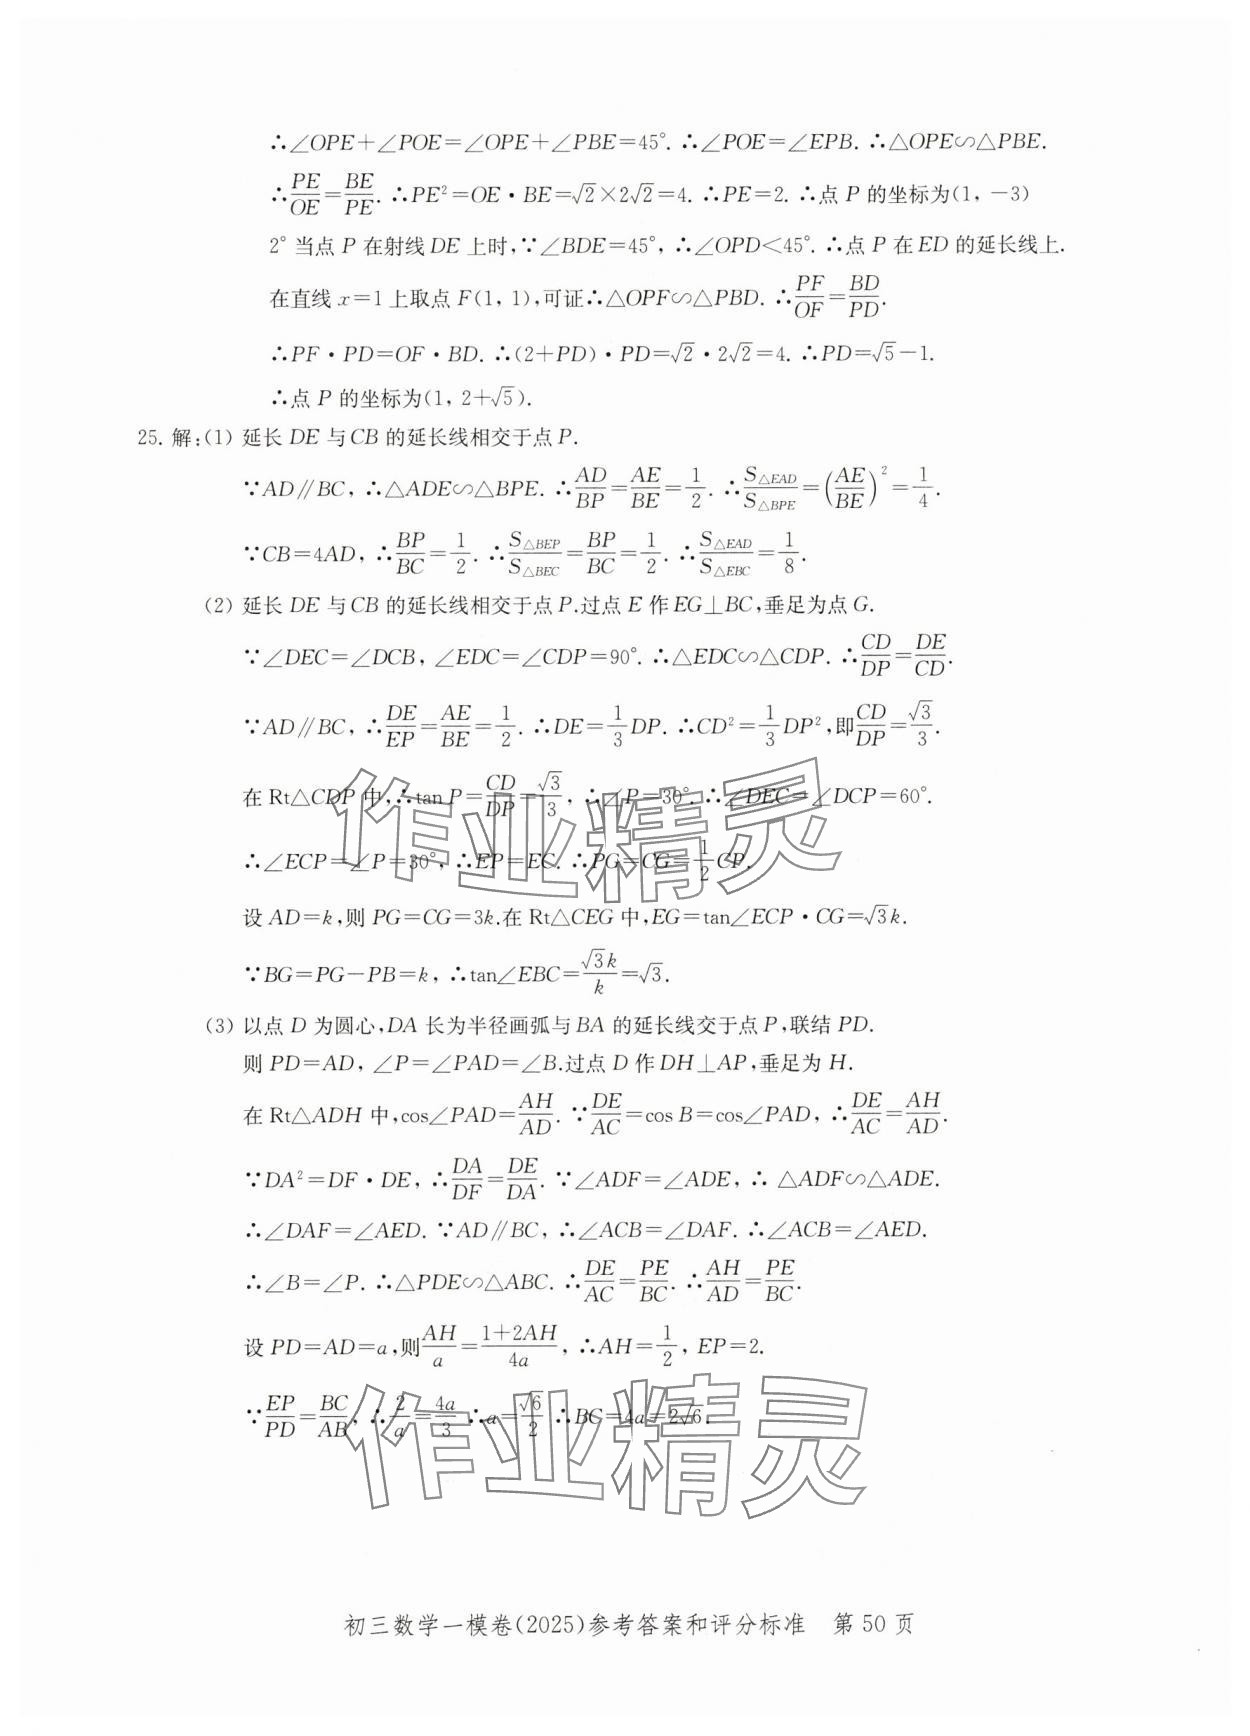 ∴∠OPE+∠POE=∠OPE+∠PBE=45°. ∴∠POE=∠EPB. ∴△OPE∽△PBE.
∴PE/OE=BE/PE. ∴PE²=OE·BE=√2×2√2=4. ∴PE=2. ∴点 P 的坐标为(1, −3)
2° 当点 P 在射线 DE 上时,∵∠BDE=45°, ∴∠OPD<45°. ∴点 P 在 ED 的延长线上.
在直线 x=1 上取点 F(1, 1),可证∴△OPF∽△PBD. ∴PF/OF=BD/PD.
∴PF·PD=OF·BD. ∴(2+PD)·PD=√2·2√2=4. ∴PD=√5−1.
∴点 P 的坐标为(1, 2+√5).
25. 解:(1) 延长 DE 与 CB 的延长线相交于点 P.
∵AD∥BC, ∴△ADE∽△BPE. ∴AD/BP=AE/BE=1/2. ∴S△EAD/S△BPE=(AE/BE)²=1/4.
∵CB=4AD, ∴BP/BC=1/2. ∴S△BEP/S△BEC=BP/BC=1/2. ∴S△EAD/S△EBC=1/8.
(2) 延长 DE 与 CB 的延长线相交于点 P.过点 E 作 EG⊥BC,垂足为点 G.
∵∠DEC=∠DCB, ∠EDC=∠CDP=90°. ∴△EDC∽△CDP. ∴CD/DP=DE/CD.
∵AD∥BC, ∴DE/EP=AE/BE=1/2. ∴DE=1/3DP. ∴CD²=1/3DP²,即CD/DP=√3/3.
在 Rt△CDP 中,∴tan P=CD/DP=√3/3, ∴∠P=30°. ∴∠DEC=∠DCP=60°.
∴∠ECP=∠P=30°, ∴EP=EC. ∴PG=CG=1/2CP.
设 AD=k,则 PG=CG=3k.在 Rt△CEG 中,EG=tan∠ECP·CG=√3k.
∵BG=PG−PB=k, ∴tan∠EBC=√3k/k=√3.
(3) 以点 D 为圆心,DA 长为半径画弧与 BA 的延长线交于点 P,联结 PD.
则 PD=AD, ∠P=∠PAD=∠B.过点 D 作 DH⊥AP,垂足为 H.
在 Rt△ADH 中,cos∠PAD=AH/AD. ∵DE/AC=cos B=cos∠PAD, ∴DE/AC=AH/AD.
∵DA²=DF·DE, ∴DA/DF=DE/DA. ∵∠ADF=∠ADE, ∴ △ADF∽△ADE.
∴∠DAF=∠AED. ∵AD∥BC, ∴∠ACB=∠DAF. ∴∠ACB=∠AED.
∴∠B=∠P. ∴△PDE∽△ABC. ∴DE/AC=PE/BC. ∴AH/AD=PE/BC.
设 PD=AD=a,则AH/a=1+2AH/4a, ∴AH=1/2, EP=2.
∵EP/PD=BC/AB, ∴2/a=4a/3 ∴a=√6/2 ∴BC=4a=2√6.
作业精灵
作业精灵
初三数学一模卷(2025)参考答案和评分标准 第 50 页